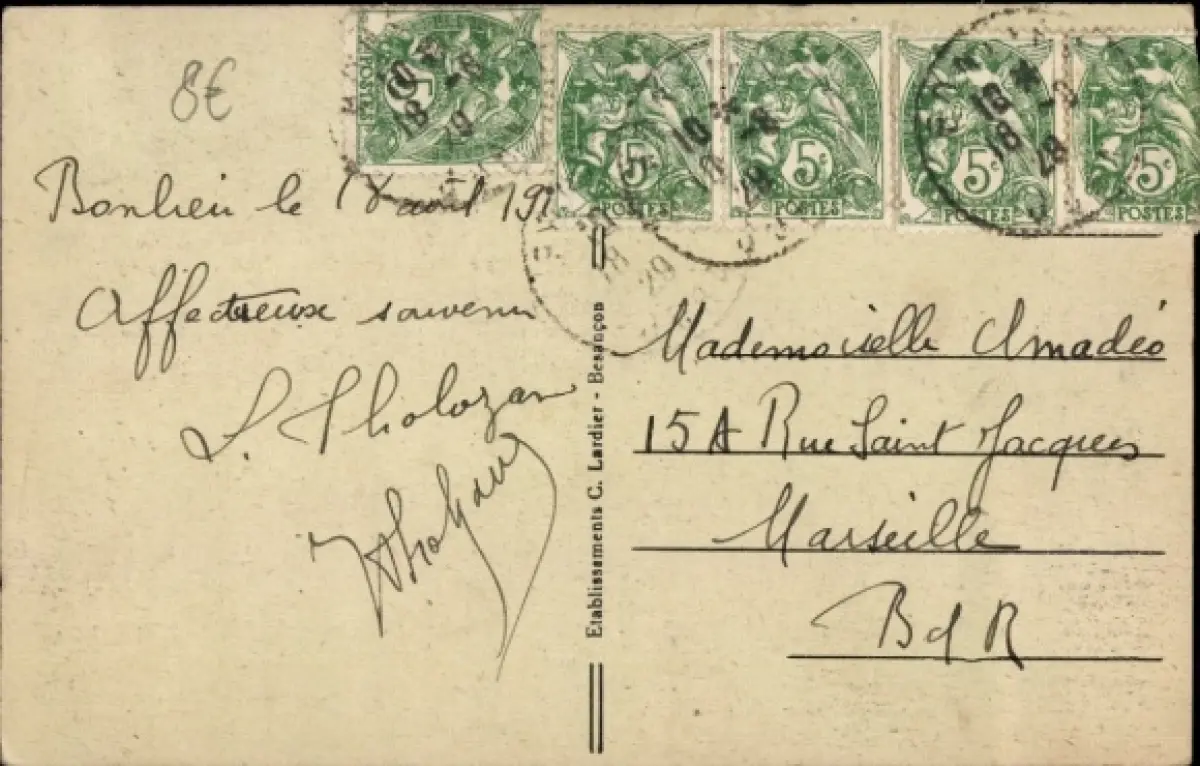 8€
Bonlieu le 18 août 19
Affectueux souvenir
Tholozan
Tholozan
Etablissements C. Lardier - Besançon
5c
POSTES
5c
POSTES
5c
POSTES
5c
POSTES
5
18
29
Mademoiselle Amadéo
15A Rue Saint Jacques
Marseille
B d R